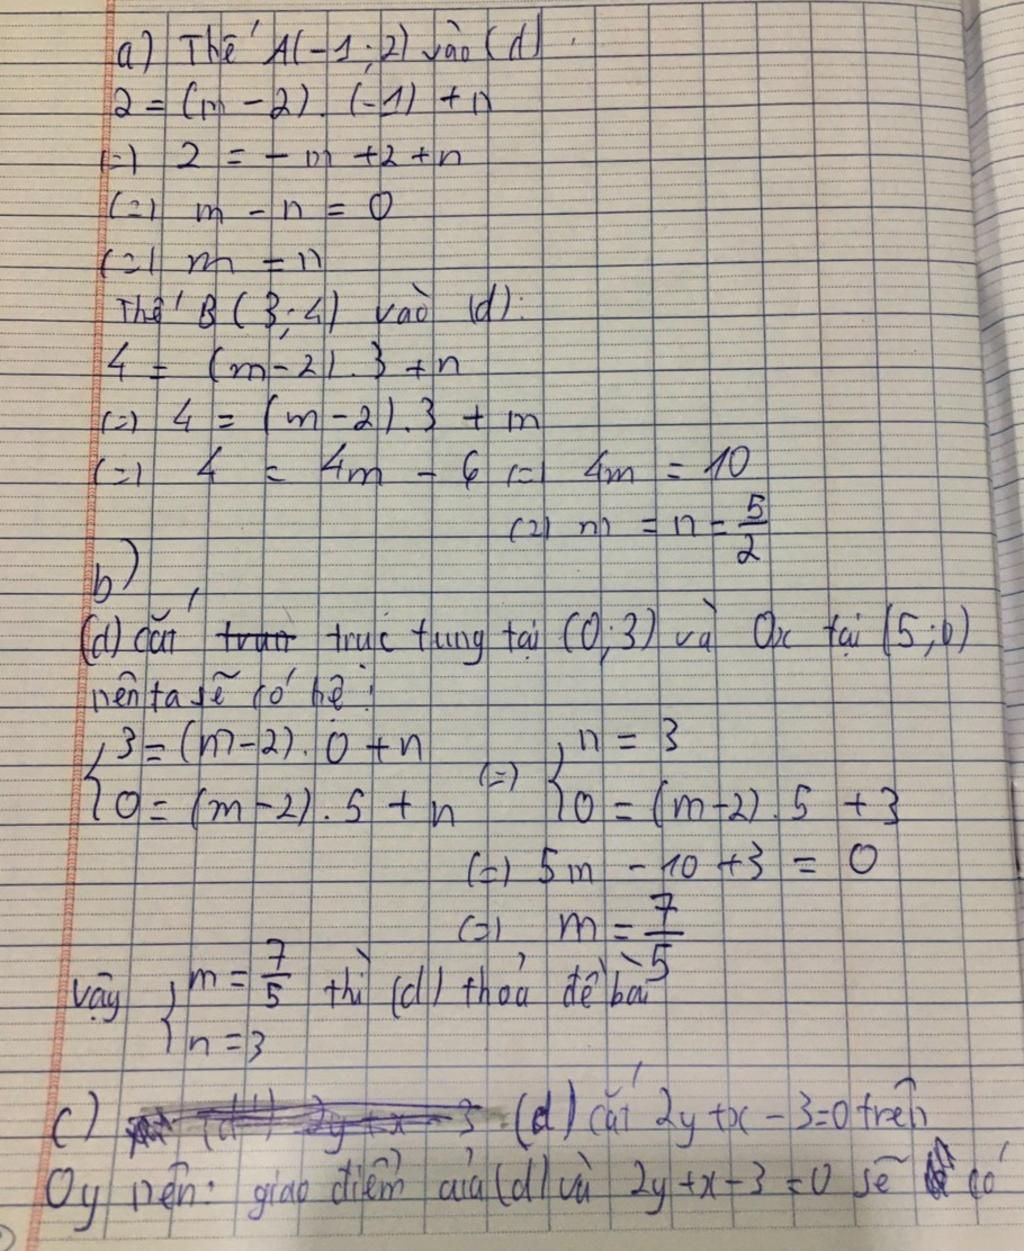 a) Thế A(-1;2) vào (d).
2 = (m - 2). (-1) + n
(=) 2 = - m + 2 + n
(=) m - n = 0
(=) m = n
Thế B (3;4) vào (d):
4 = (m-2).3 + n
(=) 4 = (m-2).3 + m
(=) 4 = 4m - 6 (=) 4m = 10
(=) m = n = 5/2
b)
(d) cắt trục tung tại (0;3) và Ox tại (5;0)
nên ta sẽ có hệ:
{ 3 = (m-2). 0 + n (=) { n = 3
0 = (m-2). 5 + n 0 = (m-2). 5 + 3
(=) 5m - 10 + 3 = 0
(=) m = 7/5
Vậy { m = 7/5 thì (d) thỏa đề bài
n = 3
c) (d') 2y + x - 3 (d) cắt 2y + x - 3 = 0 trên
Oy nên: giao điểm của (d) và 2y + x - 3 = 0 sẽ có